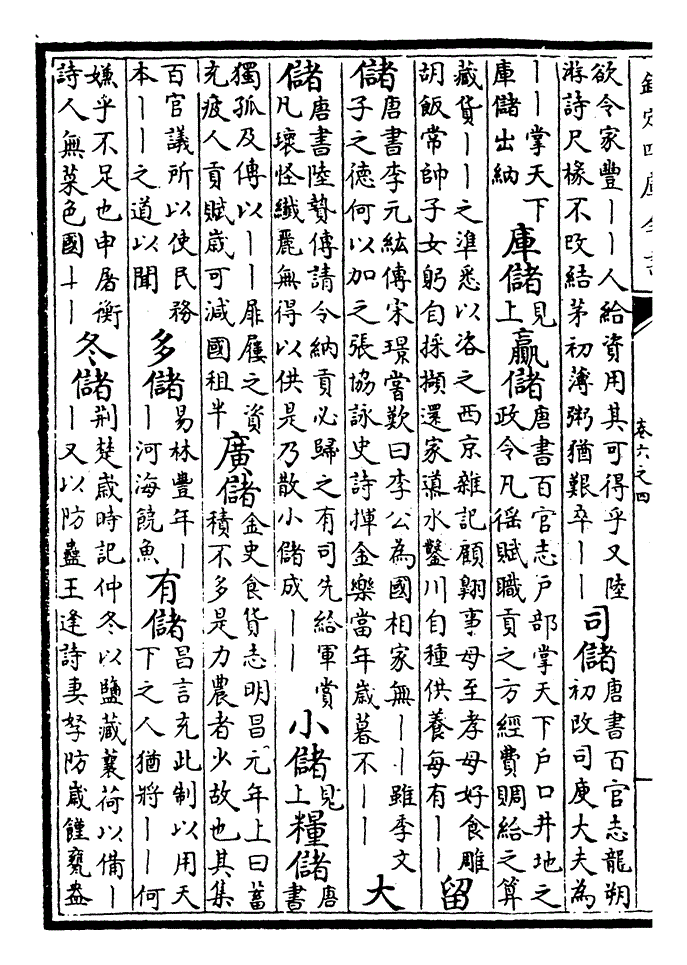 欽定四庫全書
卷六之四
欲令家豐丨丨人給資用其可得乎又陸
游詩尺椽不改結茅初薄粥猶艱卒丨丨
司儲
唐書百官志龍朔
初改司庾大夫為
丨丨掌天下
庫儲出納
庫儲
見
上
贏儲
唐書百官志户部掌天下户口井地之
政令凡徭賦職貢之方經費賙給之算
藏貨丨丨之準悉以洛之西京雜記顧翺事母至孝母好食雕
胡飯常帥子女躬自採擷還家導水鑿川自種供養每有丨丨
留
儲
唐書李元紘傳宋璟嘗歎曰李公為國相家無丨丨雖季文
子之德何以加之張協詠史詩揮金樂當年歲暮不丨丨
大
儲
唐書陸贄傳請令納貢必歸之有司先給軍賞
凡壞怪纖麗無得以供是乃散小儲成丨丨
小儲
見
上
糧儲
唐
書
獨孤及傳以丨丨扉屨之資
充疲人貢賦歲可減國租半
廣儲
金史食貨志明昌元年上曰蓄
積不多是力農者少故也其集
百官議所以使民務
本丨丨之道以聞
多儲
易林豐年丨
丨河海饒魚
有儲
昌言充此制以用天
下之人猶將丨丨何
嫌乎不足也申屠衡
詩人無菜色國丨丨
冬儲
荆楚歲時記仲冬以鹽藏蘘荷以備丨
丨又以防蠱王逢詩妻孥防歲饉甕盎